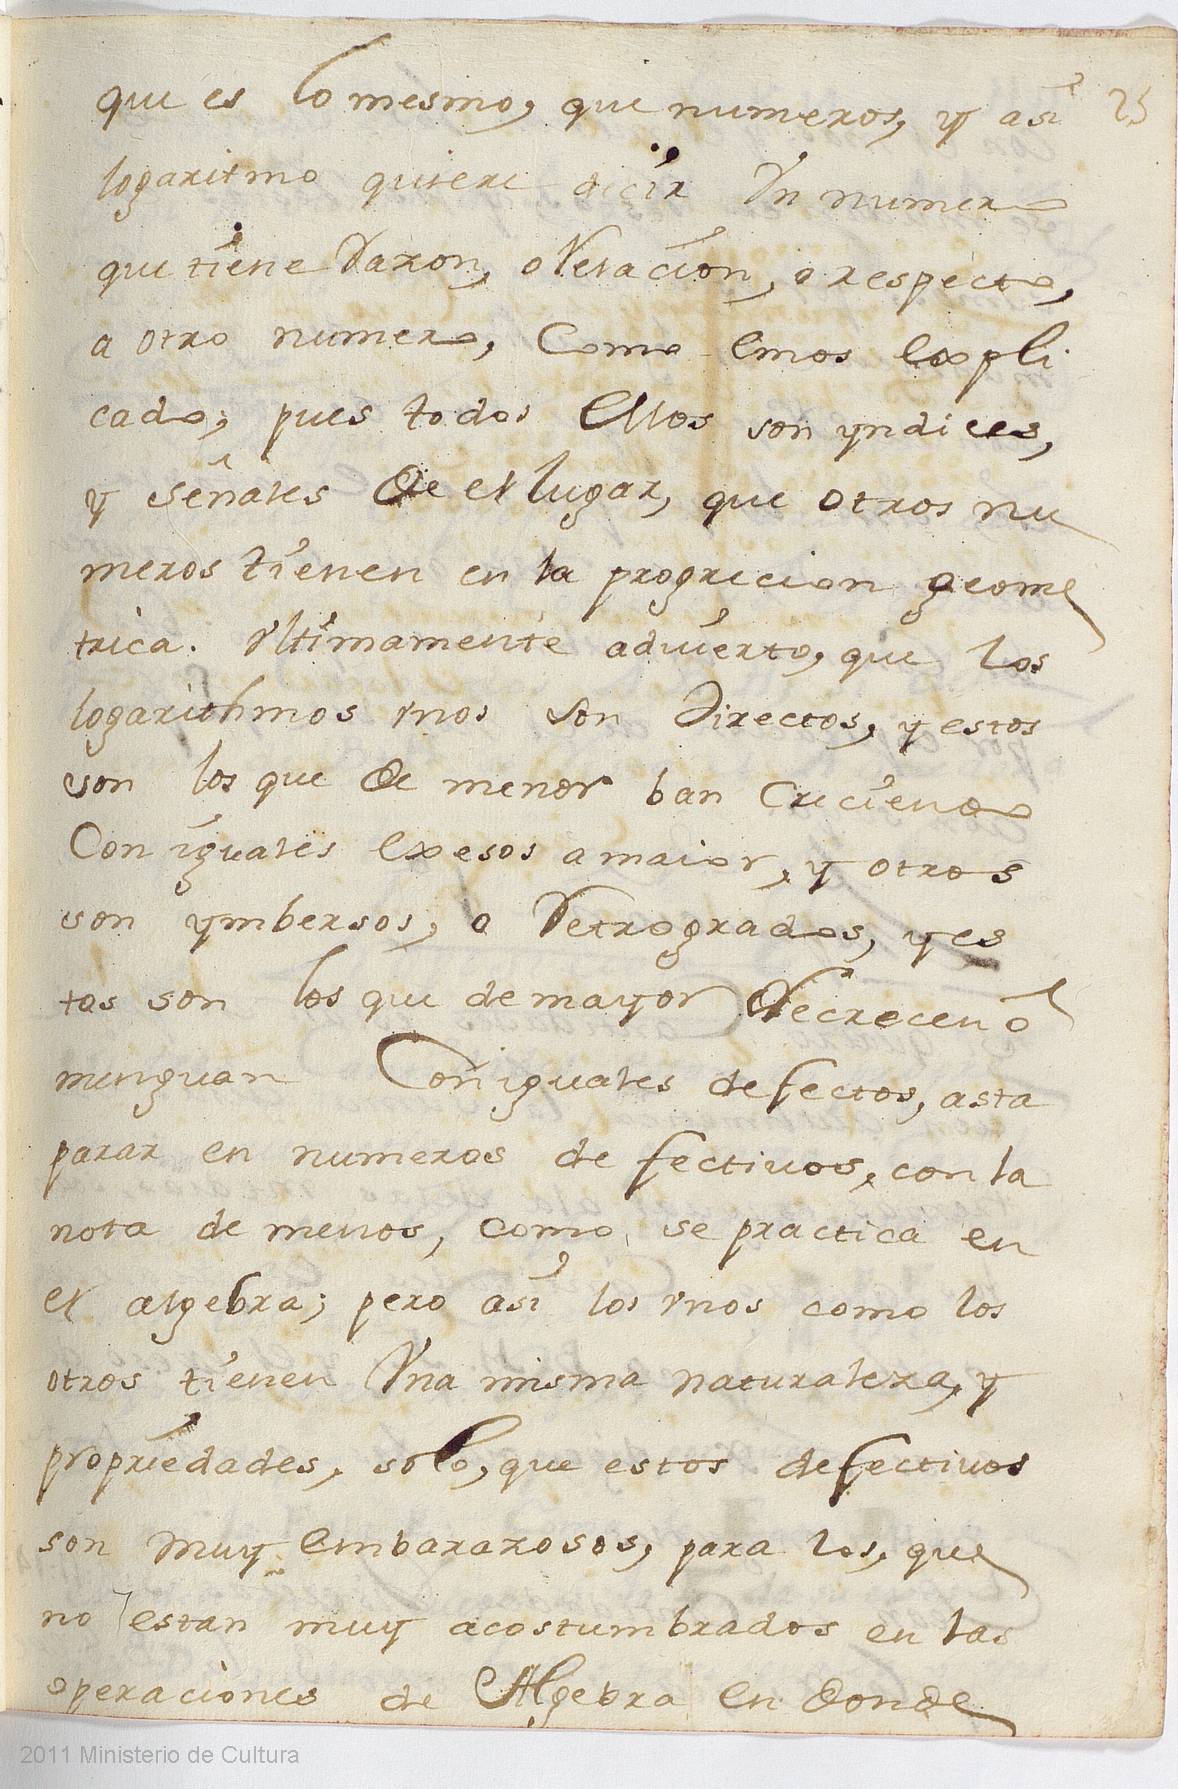 que es lo mesmo, que numeros, y asi 25
logaritmo quiere decir Vn numero
que tiene Raxon, o Relacion, o respecto,
a otro numero, Como emos expli
cado; pues todos Ellos son yndices,
y señales de el lugar, que otros nu
meros tienen en la progrecion geome
trica. Vltimamente advierto, que los
logarithmos vnos son directos, y estos
son los que de menor ban creciendo
Con iguales exesos a maior, y otros
son ymbersos, o Retrogrados, y es
tos son los que de mayor decrecen ó
minguan Con iguales defectos, asta
parar en numeros defectivos, con la
nota de menos, como se practica en
el algebra; pero asi los vnos como los
otros tienen Vna misma naturaleza, y
propriedades, solo, que estos defectivos
son muy embarazosos, para los, que
no estan muy acostumbrados en las
operaciones de Algebra en donde
2011 Ministerio de Cultura